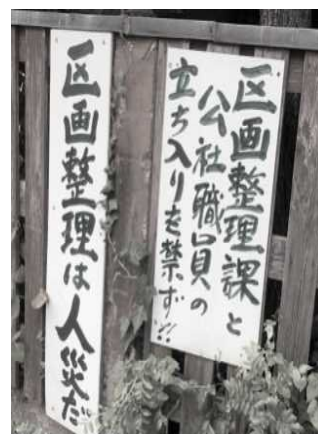 区画整理課と
公社職員の
立ち入りを禁ず!!
区画整理は人災だ